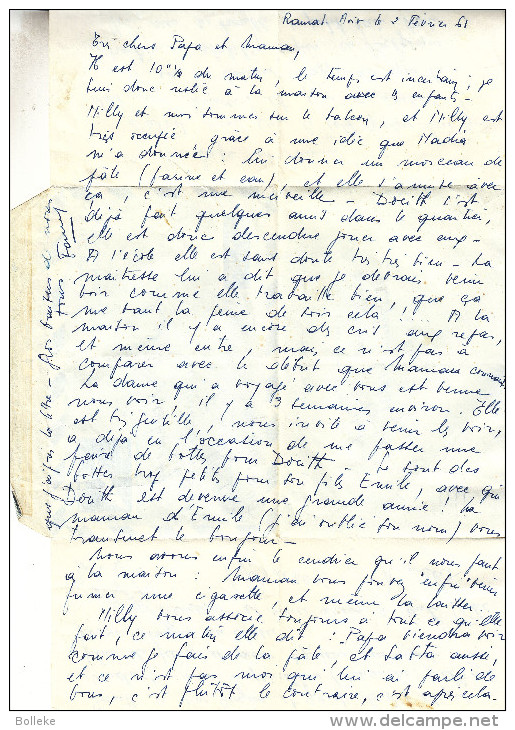 Ramat Aviv le 2 Février 61
Très chers Papa et Maman,
Il est 10h ½ du matin, le temps est incertain ; je
suis donc restée à la maison avec les enfants -
Milly et moi sommes sur le balcon, et Milly est
très occupée grâce à une idée que Nadia
m'a donnée : lui donner un morceau de
pâte (farine et eau), et elle s'amuse avec
ça, c'est une merveille - Dorith s'est
déjà fait quelques amis dans le quartier,
elle est donc descendue jouer avec eux -
A l'école elle est sans doute très très bien - La
maîtresse lui a dit que je devrais venir
voir comme elle travaille bien, que ça
me vaut la peine de voir cela ! A la
maison il y a encore des cris aux repas,
et même entre mais ce n'est pas à
comparer avec le début que Maman connaît
La dame qui a voyagé avec vous est venue
nous voir il y a 3 semaines environ. Elle
est très gentille, nous invite à venir les voir,
a déjà eu l'occasion de me passer une
paire de bottes pour Dorith. Ce sont des
bottes trop petites pour son fils Emile, avec qui
Dorith est devenue une grande amie ! La
maman d'Emile (j'ai oublié son nom) vous
transmet le bonjour -
Nous avons enfin le cendrier qu'il nous faut
à la maison : Maman vous pouvez enfin venir
fumer une cigarette, et même la laisser.
Milly vous associe toujours à tout ce qu'elle
fait, ce matin elle dit : Papa viendra voir
comme je fais de la pâte, et Safta aussi,
et ce n'est pas moi qui lui ai parlé de
vous, c'est plutôt le contraire, c'est après cela
que j'ai pris la lettre - Gros baisers de nous
tous Fanny
Bolleke
www.delcampe.net